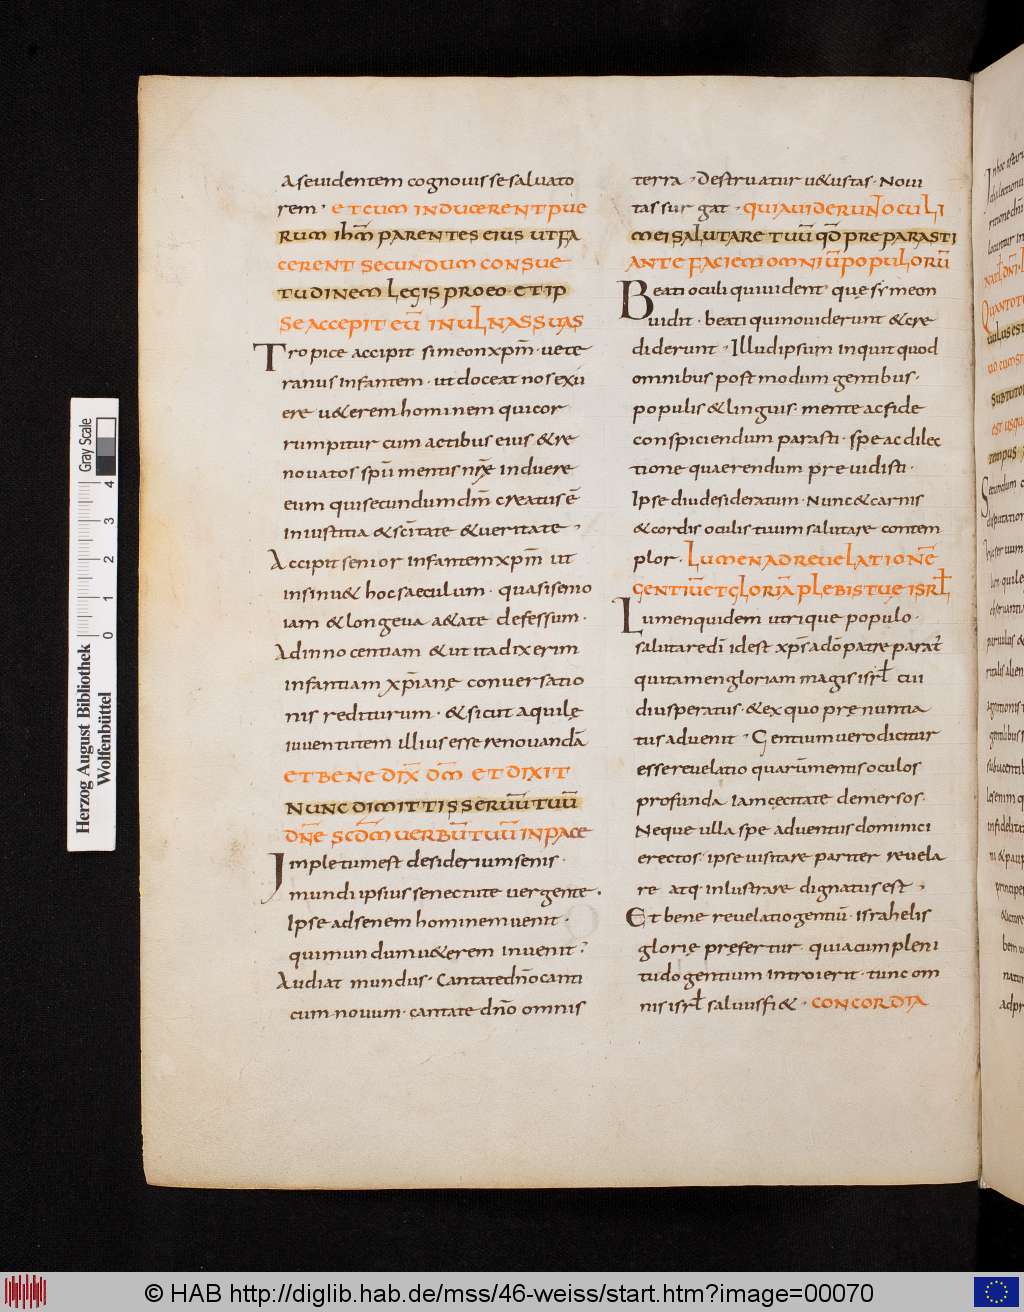 A se uidentem cognouisse saluato
rem. ET CUM INDUCERENT PUE
RUM IHM̄ PARENTES EIUS UT FA
CERENT SECUNDUM CONSUE
TUDINEM LEGIS PRO EO· ET IP
SE ACCEPIT EŪ IN ULNAS SUAS
Tropice accipit simeon xp̄m· uete
ranus infantem· ut doceat nos exu
ere u&erem hominem qui cor
rumpitur cum actibus eius &re
nouatos spū mentis nr̄ę induere
eum qui secundum dm̄ creatus ē
in iustitia &sc̄itate &ueritate·
Accipit senior infantem xp̄m ut
insinu& hoc saeculum· quasi senio
iam &longeua a&ate defessum·
Ad innocentiam &ut ita dixerim
infantiam xp̄ianę conuersatio
nis rediturum· &sicut aquilę
iuuentutem illius esse renouandā
ET BENEDIX̄ DM̄ ET DIXIT
NUNC DIMITTIS SERUŪ TUŪ
DN̄E SCDM̄ UERBŪ TUŪ IN PACE
Impletum est desiderium senis·
mundi ipsius senectute uergente·
Ipse ad senem hominem uenit·
qui mundum u&erem inuenit·
Audiat mundus· Cantate dn̄o canti
cum nouum· cantate dn̄o omnis
terra· Destruatur u&ustas· Noui
tas surgat· QUIA UIDERUN̄ OCULI
MEI SALUTARE TUŪ QD̄ PREPARASTI
ANTE FACIEM OMNIŪ POPULORŪ
Beati oculi qui uident· quę symeon
uidit· beati qui non uiderunt &cre
diderunt· Illud ipsum inquit quod
omnibus post modum gentibus·
populis &linguis· mente ac fide
conspiciendum parasti· spe ac dilec
tione quaerendum preuidisti·
Ipse diu desideratum· Nunc &carnis
&cordis oculis tuum salutare contem
plor· LUMEN AD REUELATIONĒ
GENTIŪ ET GLORIĀ PLEBIS TUĘ ISRL̄
Lumen quidem utrique populo·
salutare dī idest xp̄s a dō patre parat̄
qui tamen gloriam magis isrl̄ cui
diu speratus· &ex quo prę nuntia
tus aduenit· Gentium uero dicitur
esse reuelatio quarū mentis oculos
profunda iam cęcitate demersos·
Neque ulla spe aduentus dominici
erectos· ipse uisitare pariter reuela
re atq· inlustrare dignatus est·
Et bene reuelatio gentiū· israhelis
glorię prefertur· quia cum pleni
tudo gentium introierit· tunc om
nis isrl̄ saluus fi&· CONCORDIA
Herzog August Bibliothek
Wolfenbüttel
0 1 2 3 4
Gray Scale
© HAB http://diglib.hab.de/mss/46-weiss/start.htm?image=00070